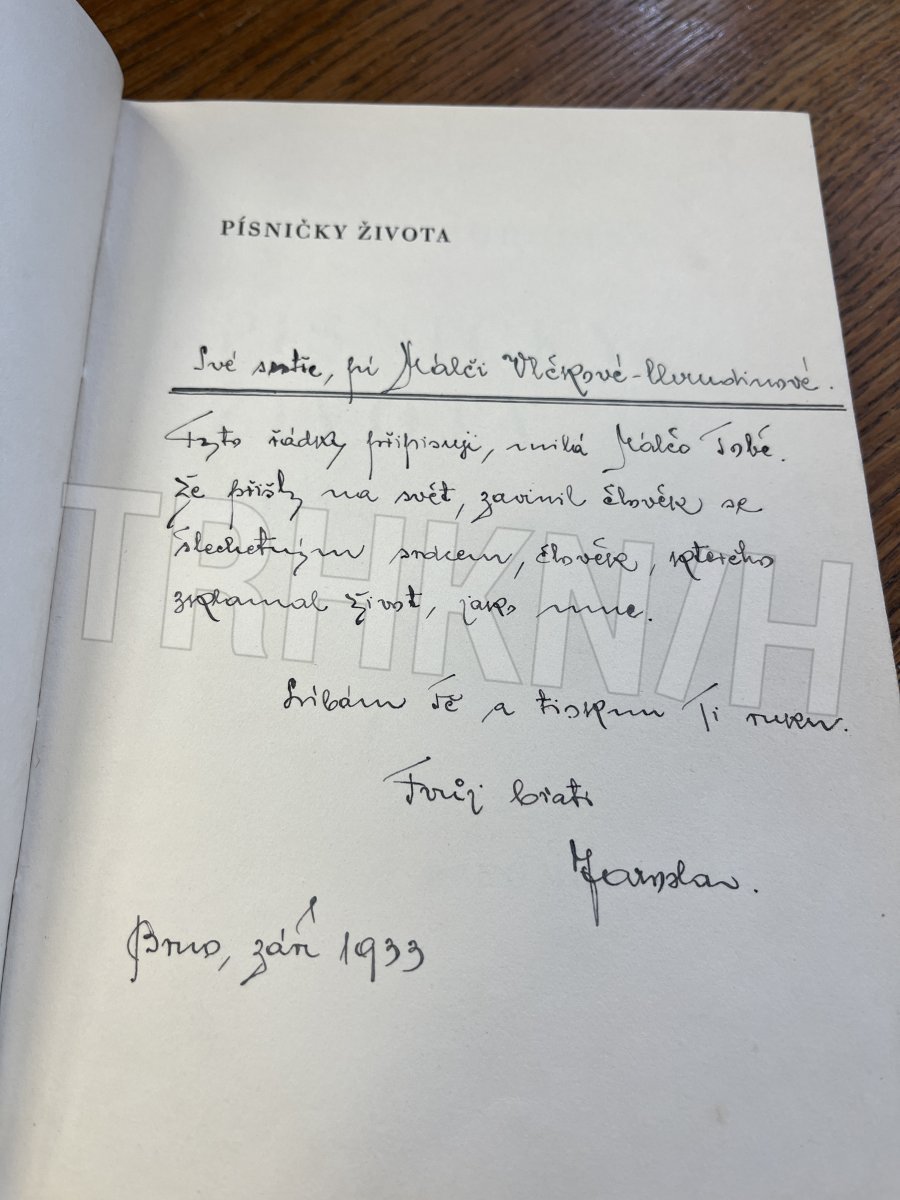 PÍSNIČKY ŽIVOTA
Své sestře, pí Málči Vlčkové-Chrudinové.
Tyto řádky připisuji, milá Málčo Tobě.
Že přišly na svět, zavinil člověk se
šlechetným srdcem, člověk, kterého
zklamal život, jako mne.
TRHKNIH
Líbám Tě a tisknu Ti ruku.
Tvůj bratr
Jaroslav.
Brno, září 1933